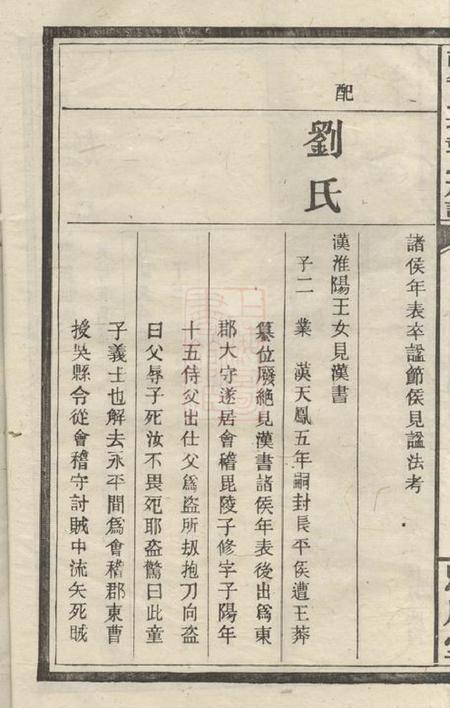 諸侯年表卒諡節侯見諡法考
配
劉氏
漢淮陽王女見漢書
子二 業 漢天鳳五年嗣封長平侯遭王莽
簒位廢絶見漢書諸侯年表後出爲東
郡大守遂居會稽毘陵子修字子陽年
十五侍父出仕父爲盜所刼抱刀向盜
曰父辱子死汝不畏死耶盜驚曰此童
子義士也解去永平間爲會稽郡東曹
授吳縣令從會稽守討賊中流矢死賊